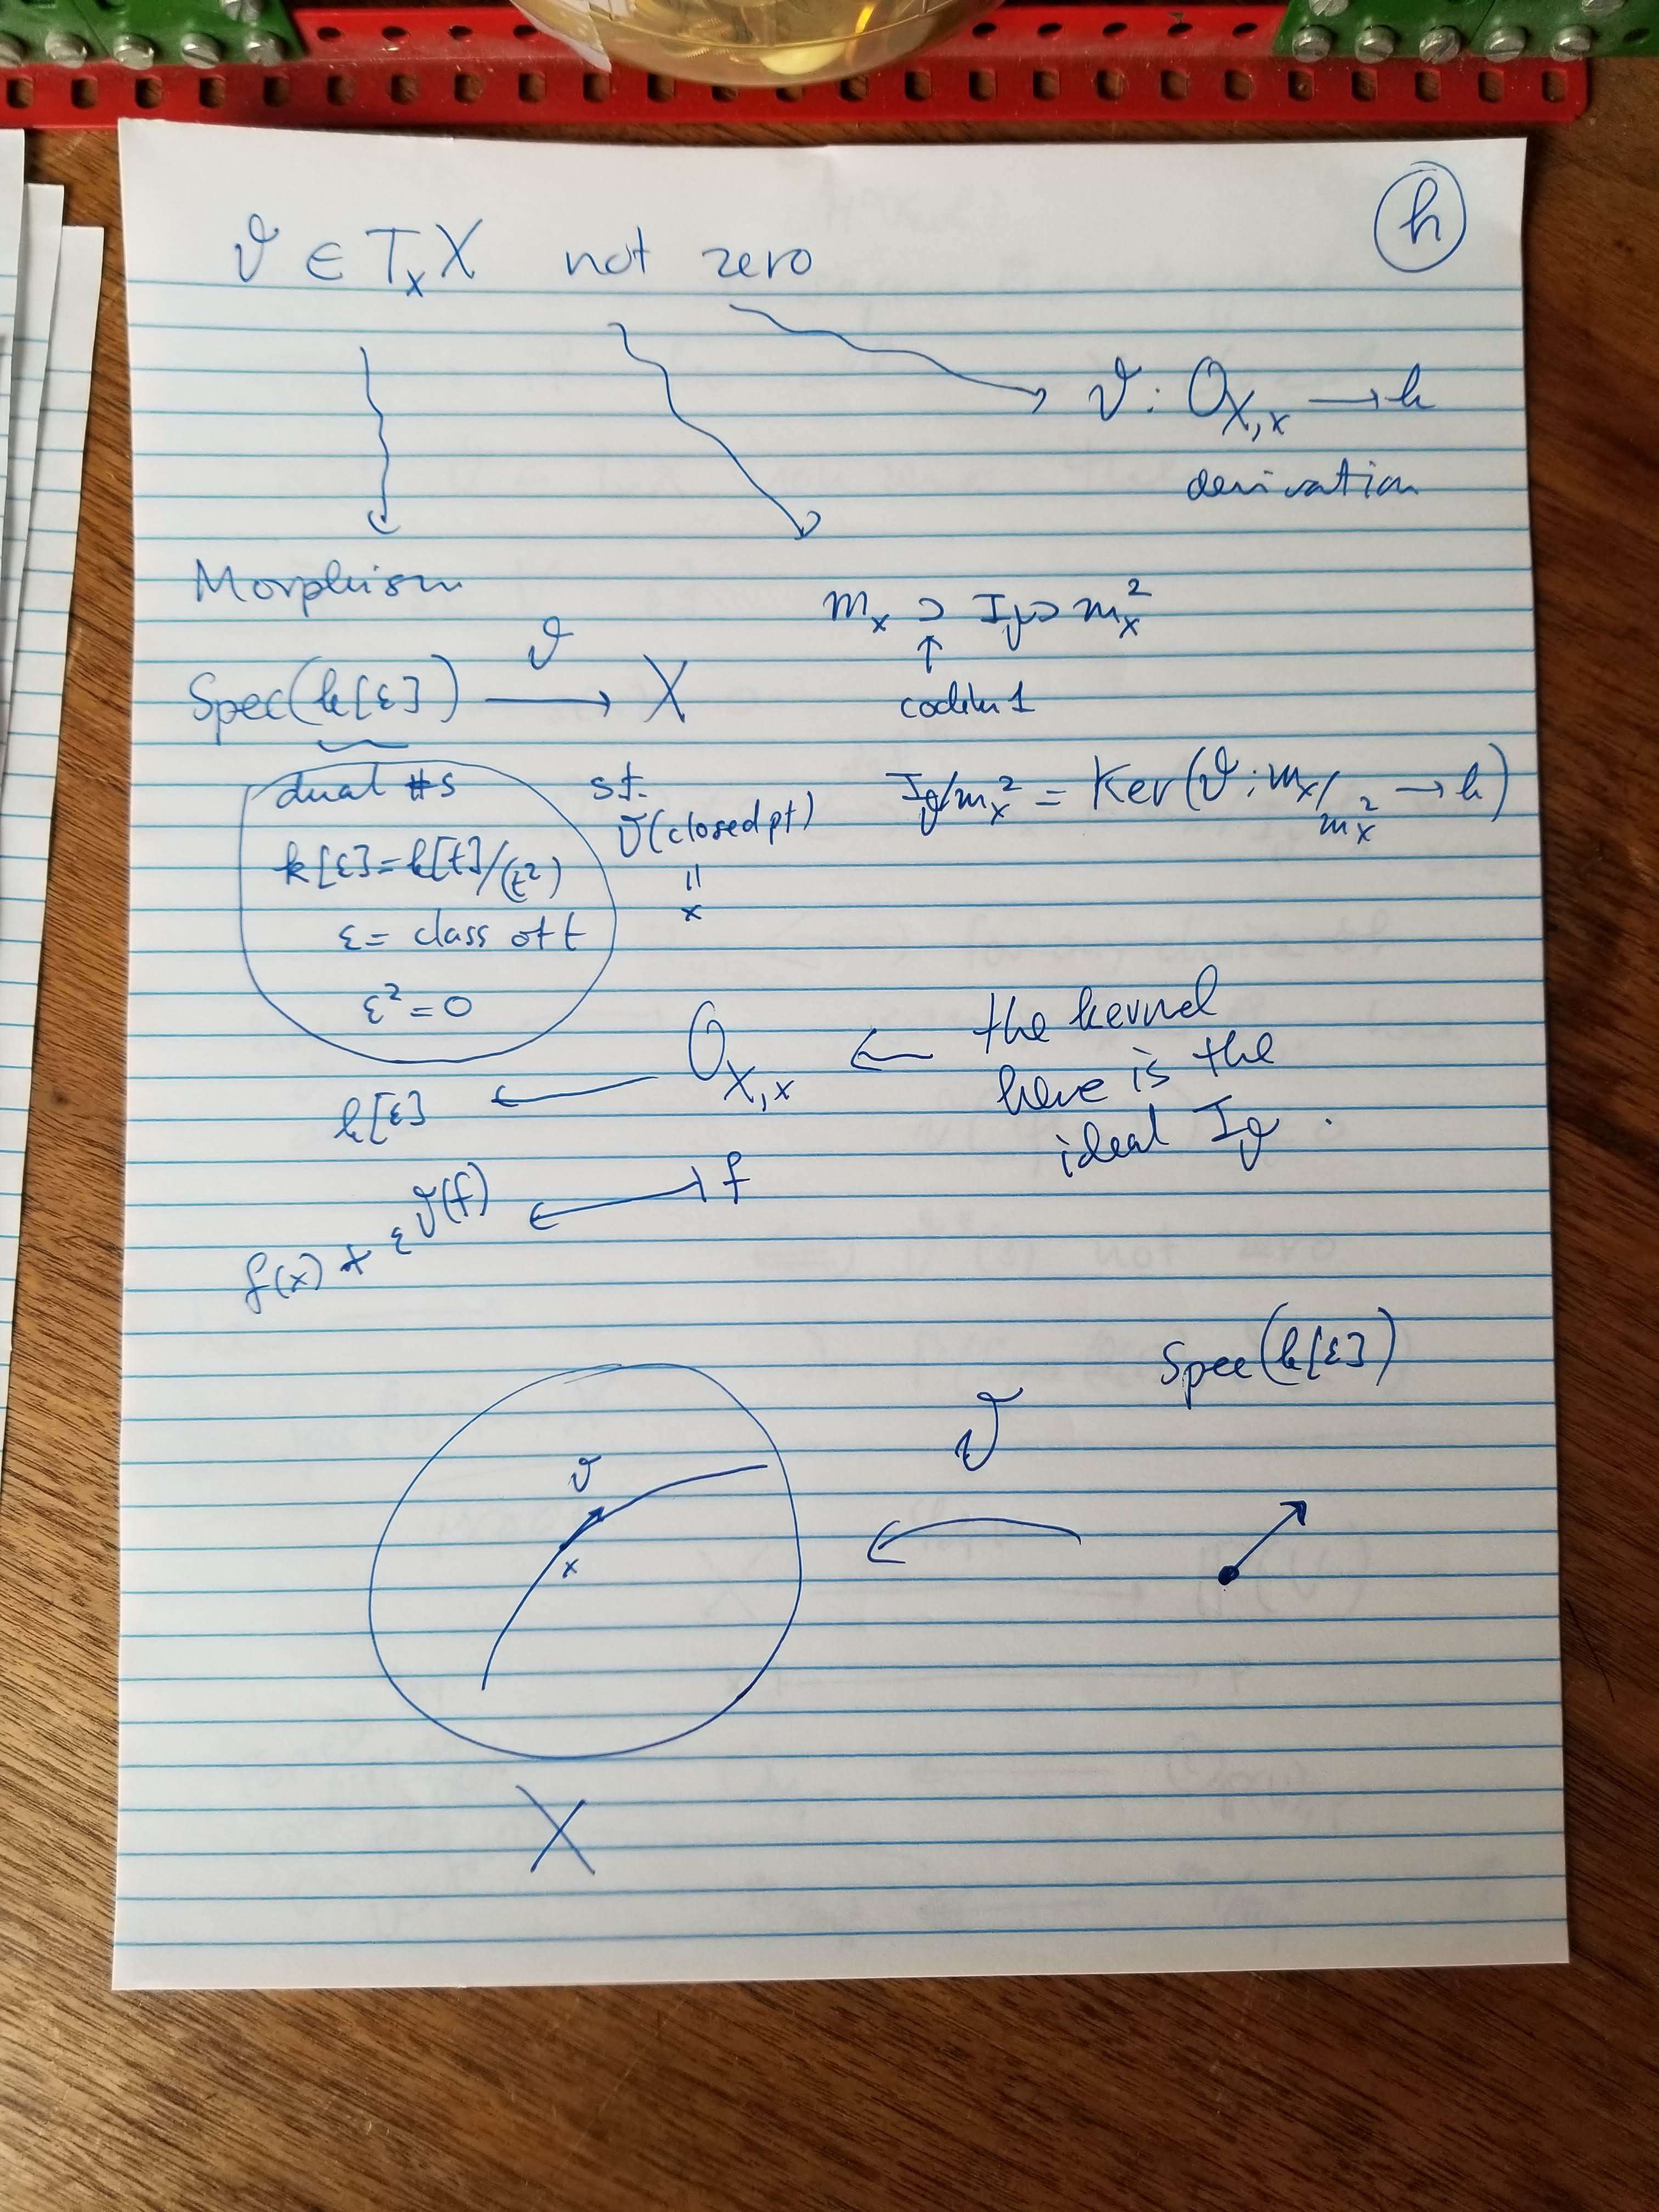 h
ϑ ∈ TₓX not zero
ϑ : O_{X,x} → k
derivation
Morphism
Spec(k[ε]) —ϑ→ X
mₓ ⊃ I_ϑ ⊃ mₓ²
↑
codim 1
dual #s
k[ε] = k[t]/(t²)
ε = class of t
ε² = 0
s.t.
ϑ(closed pt)
॥
x
I_ϑ/mₓ² = Ker(ϑ : mₓ/mₓ² → k)
k[ε] ← O_{X,x} ← the kernel
here is the
ideal I_ϑ.
f(x) + εϑ(f) ↤ f
Spec(k[ε])
ϑ
ϑ
x
X